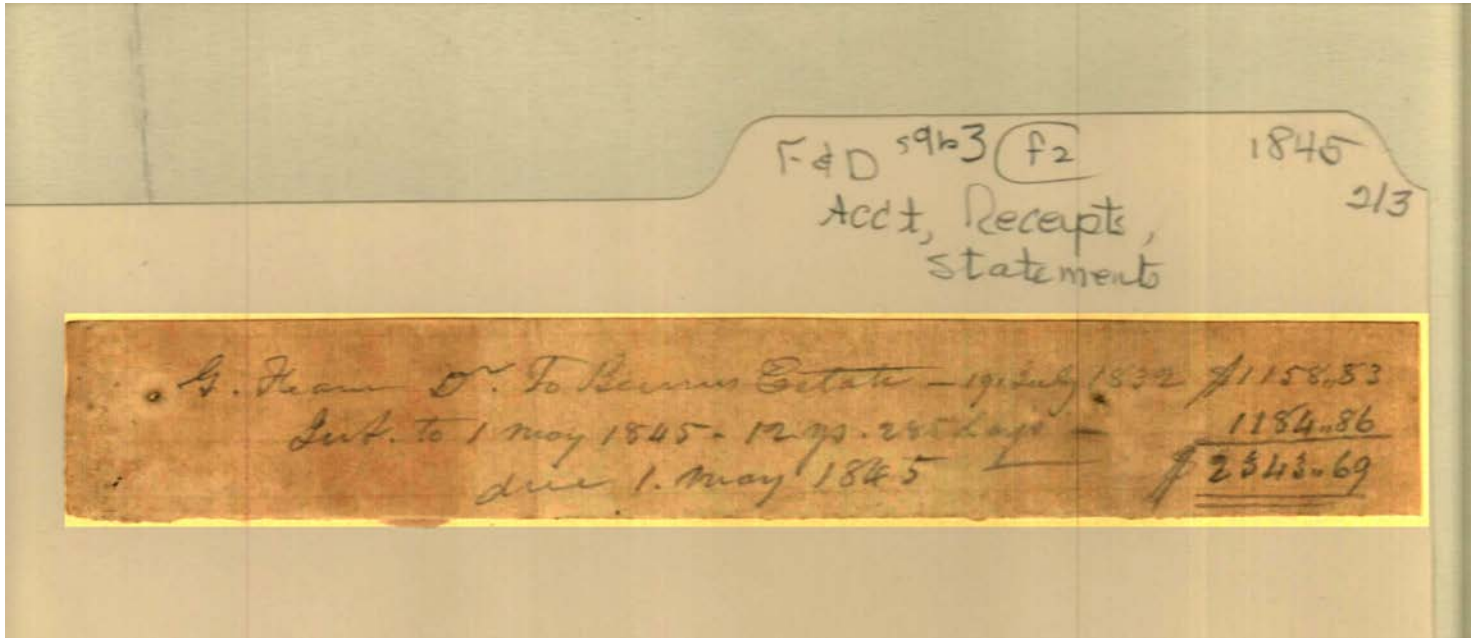 F & D s9b3 f2 1845
2/3
Acct, Receipts,
Statements
G. Fearn Dr. To Burrus Estate - 19 July 1832 $1158.83
Int. to 1 May 1845 - 12 ys. 285 days - 1184.86
due 1. May 1845 — $2343.69